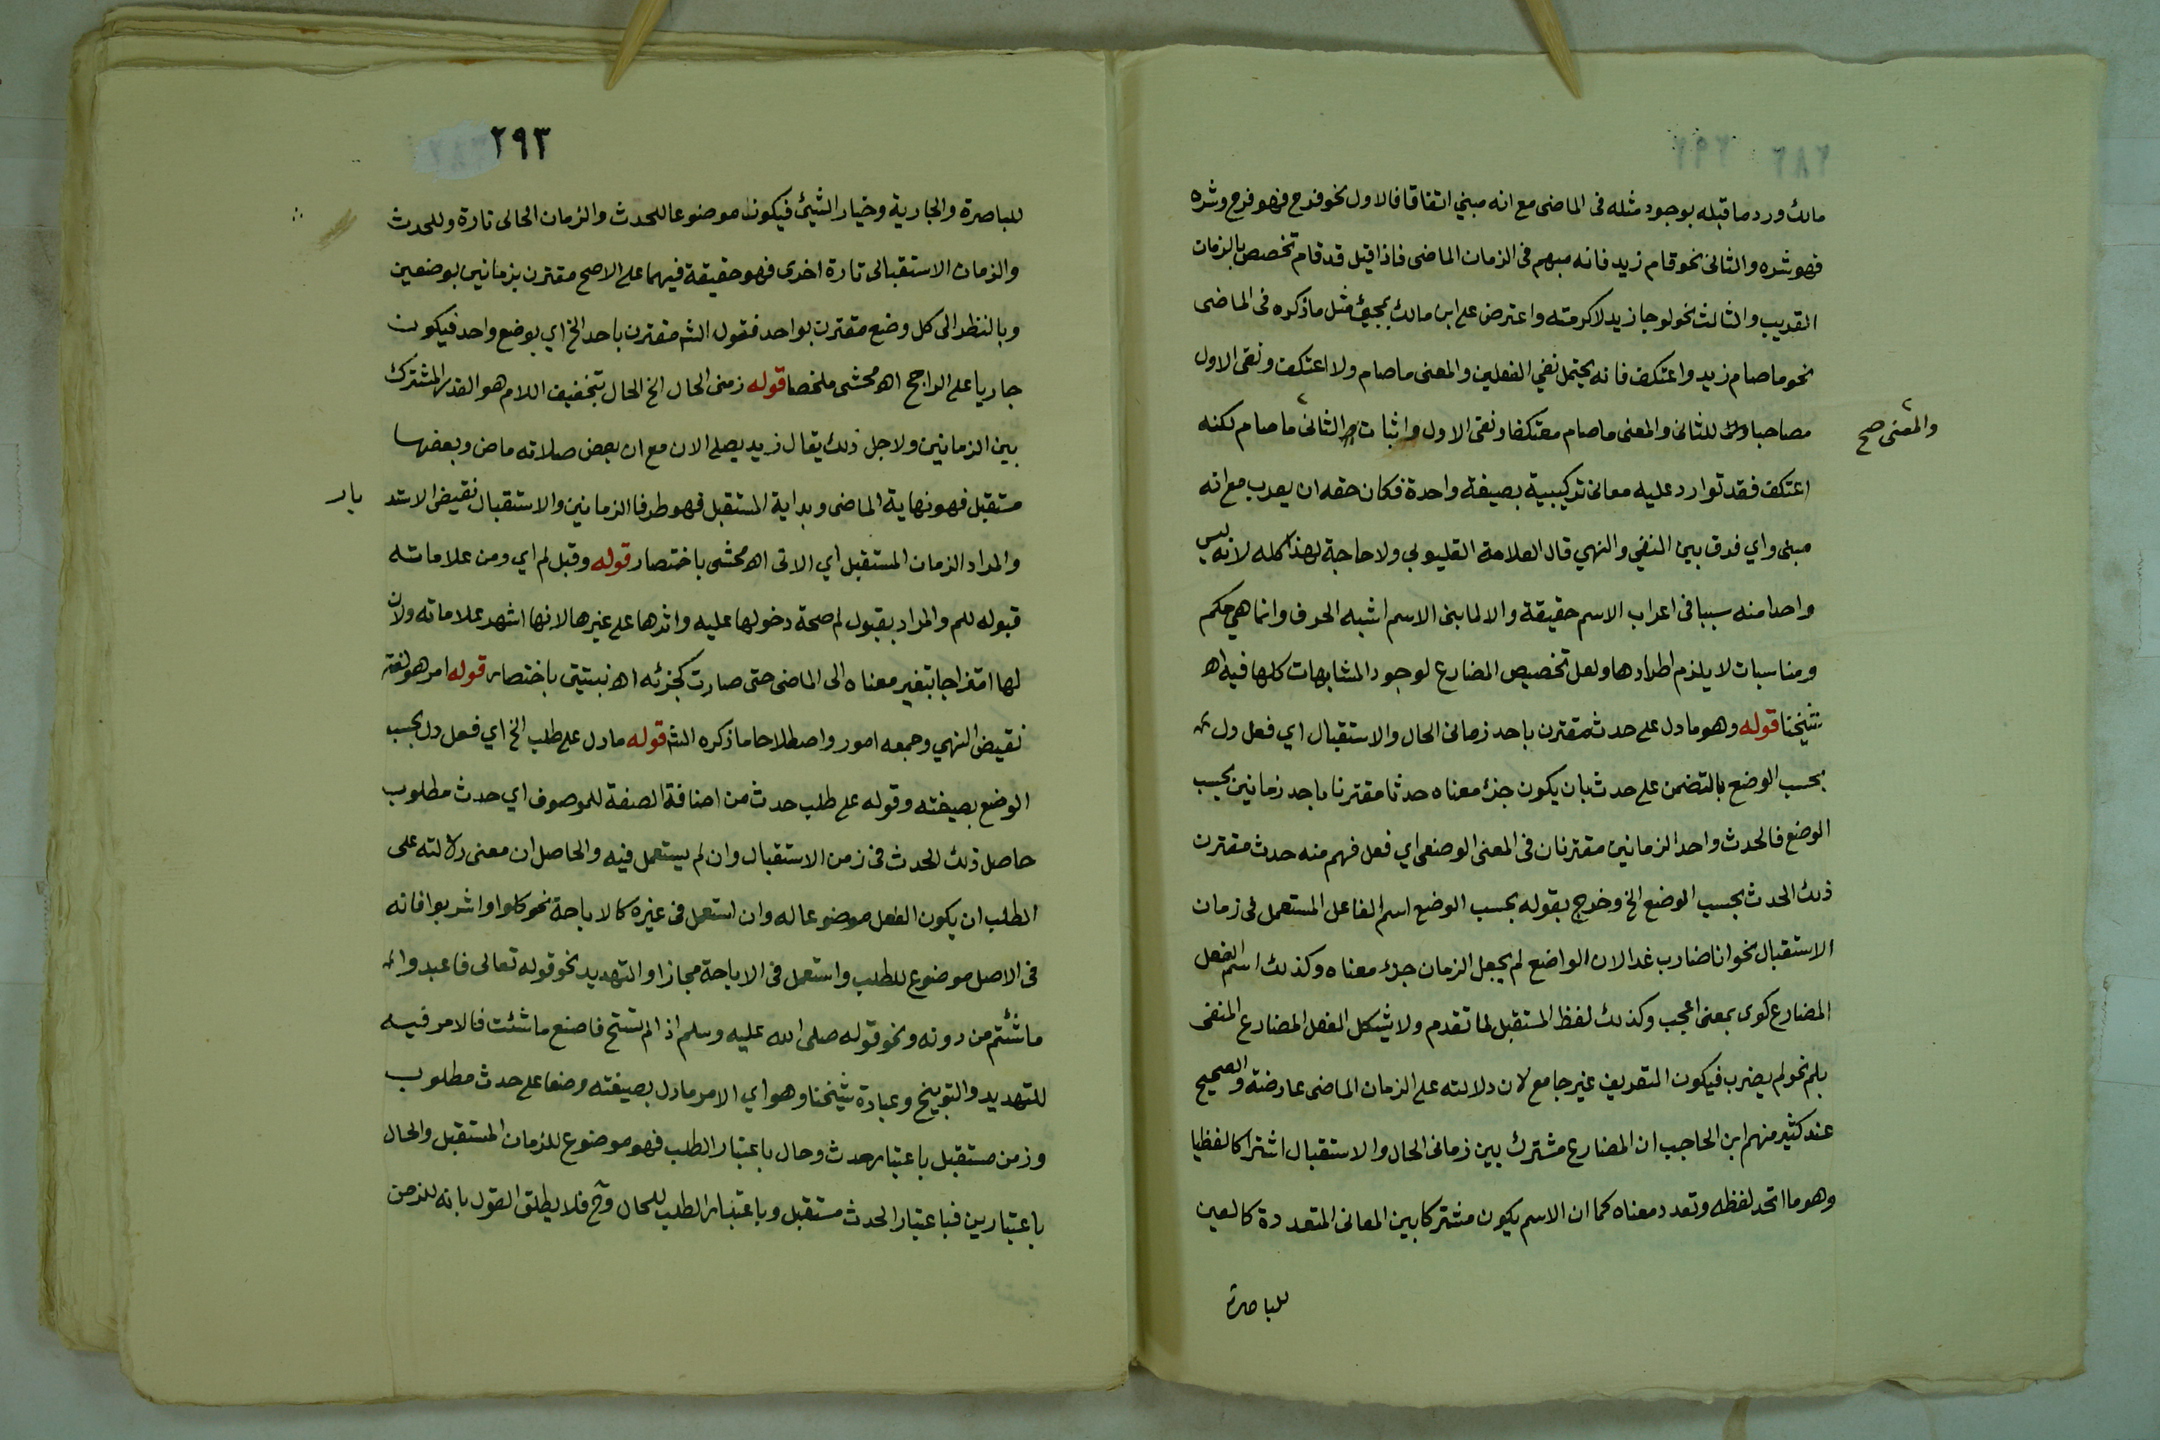 مالك ورد ما قبله بوجود مثله فى الماضى مع انه مبني اتفاقا فالاول نحو فرح فهو فرح وشره
فهو شره والثانى نحو قام زيد فانه مبهم فى الزمان الماضى فاذا قيل قد قام تخصص بالزمان
القريب والثالث نحو لو جا زيد لاكرمته واعترض على ابن مالك بمجيئ مثل ما ذكره فى الماضى
نحو ما صام زيد واعتكف فانه يحتمل نفي الفعلين والمعنى ما صام ولا اعتكف ونفى الاول
مصاحبا للثانى والمعنى ما صام معتكفا ونفى الاول واثبات الثانى ما صام لكنه
والمعنى صح
اعتكف فقد توارد عليه معانى تركيبية بصيغة واحدة فكان حقه ان يعرب مع انه
مبنى واي فرق بين النفي والنهي قال العلامة القليوبي ولا حاجة لهذا كله لانه ليس
واحدا منه سببا فى اعراب الاسم حقيقة والا لما بنى الاسم اشبه الحرف وانما هي حكم
ومناسبات لا يلزم اطرادها ولعل تخصيص المضارع لوجود المشابهات كلها فيه اه
شيخنا قوله وهو ما دل على حدث مقترن باحد زمانى الحال والاستقبال اي فعل دل
بحسب الوضع بالتضمن على حدث بان يكون جزء معناه حدثا مقترنا باحد زمانين بحسب
الوضع فالحدث واحد الزمانين مقترنان فى المعنى الوضعي اي فعل فهم منه حدث مقترن
ذلك الحدث بحسب الوضع الخ وخرج بقوله بحسب الوضع اسم الفاعل المستعمل فى زمان
الاستقبال نحو انا ضارب غدا لان الواضع لم يجعل الزمان جزء معناه وكذلك اسم الفعل
المضارع كوى بمعنى اعجب وكذلك لفظ المستقبل لما تقدم ولا يشكل الفعل المضارع المنفى
بلم نحو لم يضرب فيكون التعريف غير جامع لان دلالته على الزمان الماضى عارضة والصحيح
عند كثير منهم ابن الحاجب ان المضارع مشترك بين زمانى الحال والاستقبال اشتراكا لفظيا
وهو ما اتحد لفظه وتعدد معناه كما ان الاسم يكون مشتركا بين المعانى المتعددة كالعين
للباصرة
٢٩٣
للباصرة والجارية وخيار الشيئ فيكون موضوعا للحدث والزمان الحالى تارة وللحدث
والزمان الاستقبالى تارة اخرى فهو حقيقة فيهما على الاصح مقترن بزمانين بوضعين
وبالنظر الى كل وضع مقترن بواحد فقول الشه مقترن باحد الخ اي بوضع واحد فيكون
جاريا على الراجح اه محشى ملخصا قوله زمنى الحال الخ الحال بتخفيف اللام هو القدر المشترك
بين الزمانين ولاجل ذلك يقال زيد يصلى الان مع ان بعض صلاته ماض وبعضها
مستقبل فهو نهاية الماضى وبداية المستقبل فهو طرفا الزمانين والاستقبال نقيض الاستد
بار
والمراد الزمان المستقبل اي الاتى اه محشى باختصار قوله وقبل لم اي ومن علاماته
قبوله للم والمراد بقبول لم صحة دخولها عليه واثرها على غيرها لانها اشهر علاماته ولان
لها امتزاجا بتغير معناه الى الماضى حتى صارت كجزئه اه نبتيتى باختصار قوله امر هو لغة
نقيض النهي وجمعه امور واصطلاحا ما ذكره الشه قوله ما دل على طلب الخ اي فعل دل بحسب
الوضع بصيغته وقوله على طلب حدث من اضافة الصفة للموصوف اي حدث مطلوب
حاصل ذلك الحدث فى زمن الاستقبال وان لم يستعمل فيه والحاصل ان معنى دلالته على
الطلب ان يكون الفعل موضوعا له وان استعمل فى غيره كالاباحة نحو كلوا واشربوا فانه
فى الاصل موضوع للطلب واستعمل فى الاباحة مجازا والتهديد نحو قوله تعالى فاعبدوا
ما شئتم من دونه ونحو قوله صلى الله عليه وسلم اذا لم تستح فاصنع ما شئت فالامر فيه
للتهديد والتوبيخ وعبارة شيخنا وهو اي الامر ما دل بصيغته وضعا على حدث مطلوب
وزمن مستقبل باعتبار حدث وحال باعتبار الطلب فهو موضوع للزمان المستقبل والحال
باعتبارين فباعتبار الحدث مستقبل وباعتبار الطلب للحال وح فلا يطلق القول بانه للزمن